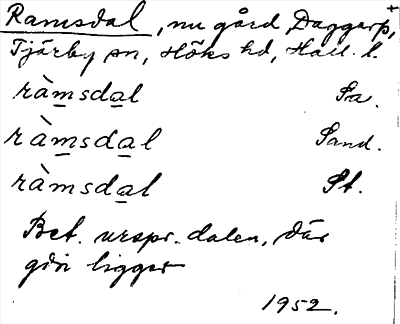 Ramsdal, nu gård, Daggarp,
Tjärby sn, Höks hd, Hall. l.
ràmsdal Sa.
ràmsdal Sand.
ràmsdal St.
Bet. urspr. dalen, där
gdn ligger
1952.